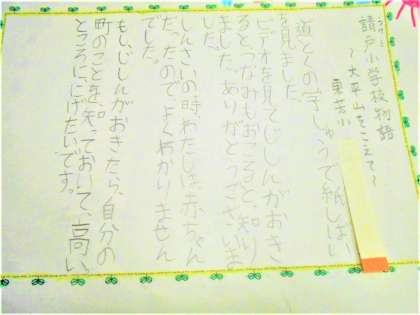 請戸小学校物語
～大平山をこえて～
道とくの学しゅうで紙しばい
を見ました。
ビデオを見てじしんがおき
ると、なみもおこると、知り
ました。ありがとうございま
した。
しんさいの時、わたしは、赤ちゃん
だったので、よくわかりません
でした。
もし、じしんがおきたら、自分の
町のことを、知っておいて、高い
ところににげたいです。